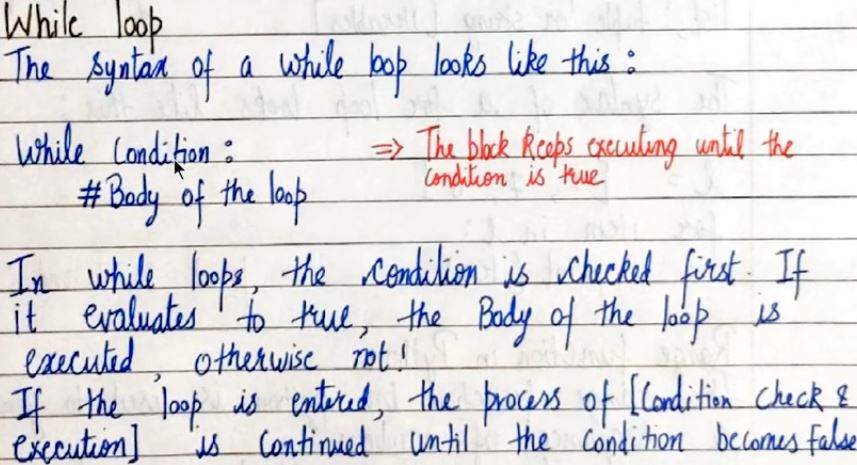 While loop
The syntax of a while loop looks like this :
While Condition : => The block keeps executing until the
condition is true
# Body of the loop
In while loops, the condition is checked first. If
it evaluates to true, the Body of the loop is
executed, otherwise not!
If the loop is entered, the process of [Condition check &
execution] is continued until the condition becomes false